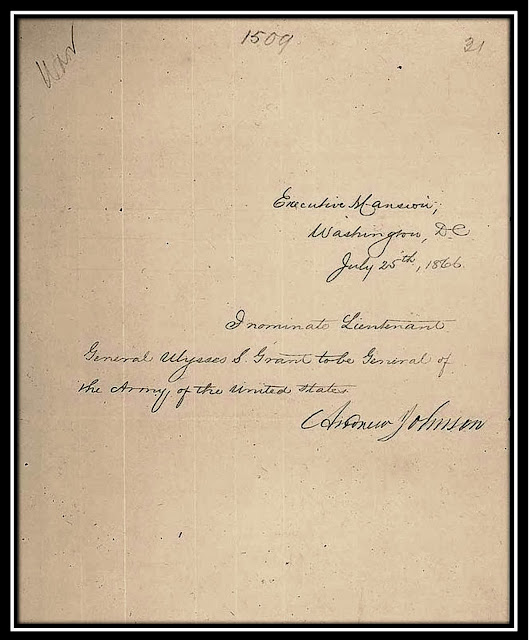 War
1509
31
Executive Mansion,
Washington, D.C
July 25th, 1866.
I nominate Lieutenant
General Ulysses S. Grant to be General of
the Army of the United States
Andrew Johnson